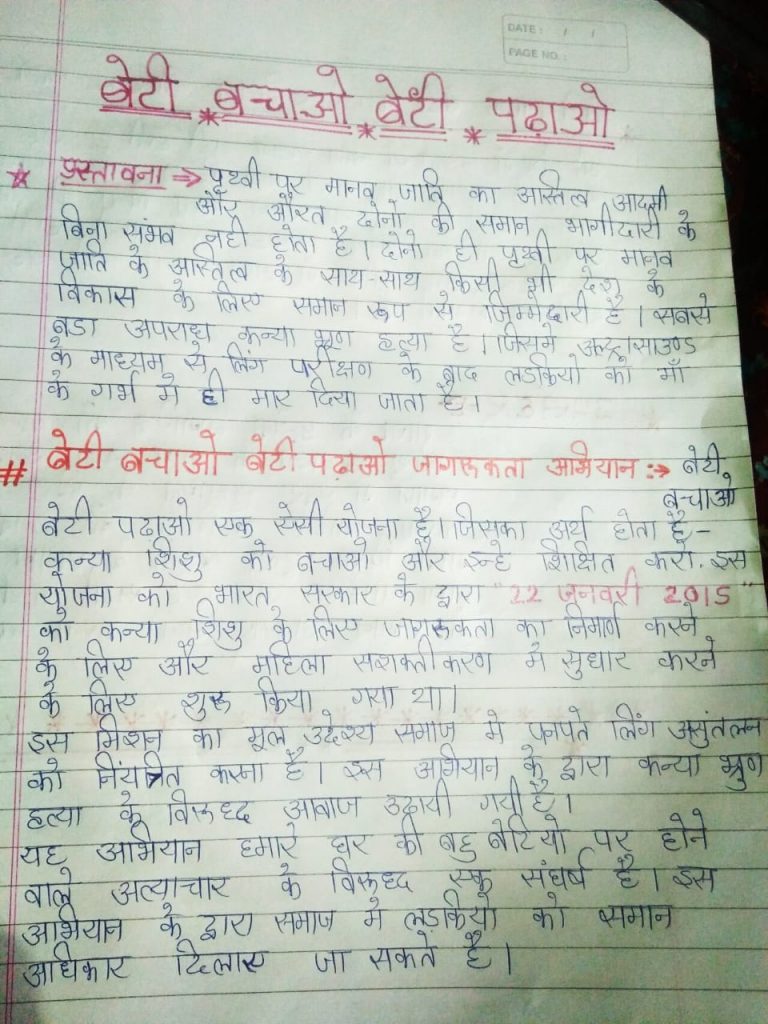 DATE : / /
PAGE NO. :
बेटी * बचाओ * बेटी * पढ़ाओ
* प्रस्तावना ⇒ पृथ्वी पर मानव जाति का अस्तित्व आदमी
और औरत दोनो की समान भागीदारी के
बिना संभव नही होता है। दोनो ही पृथ्वी पर मानव
जाति के अस्तित्व के साथ-साथ किसी भी देश के
विकास के लिए समान रूप से जिम्मेदारी है। सबसे
बडा अपराध कन्या भ्रूण हत्या है। जिसमे अल्ट्रासाउण्ड
के माध्यम से लिंग परीक्षण के बाद लडकियो को माँ
के गर्भ मे ही मार दिया जाता है।
# बेटी बचाओ बेटी पढ़ाओ जागरूकता अभियान :→ बेटी
बचाओ
बेटी पढाओ एक ऐसी योजना है। जिसका अर्थ होता है-
कन्या शिशु को बचाओ और इन्हे शिक्षित करो. इस
योजना को भारत सरकार के द्वारा "22 जनवरी 2015"
को कन्या शिशु के लिए जागरूकता का निर्माण करने
के लिए और महिला सशक्तीकरण मे सुधार करने
के लिए शुरू किया गया था।
इस मिशन का मूल उद्देश्य समाज मे पनपते लिंग असुंतलन
को नियंत्रित करना है। इस अभियान के द्वारा कन्या भ्रुण
हत्या के विरूध्द आवाज उठायी गयी है।
यह अभियान हमारे घर की बहु बेटियो पर होने
वाले अत्याचार के विरूध्द एक संघर्ष है। इस
अभियान के द्वारा समाज मे लड़कियो को समान
अधिकार दिलाए जा सकते है।